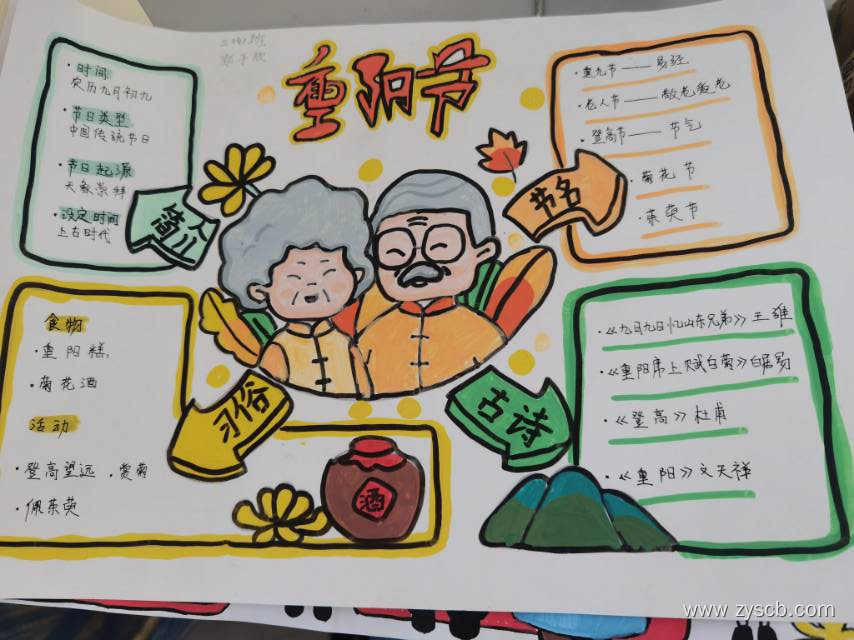 重阳节
简介
·时间
农历九月初九
·节日类型
中国传统节日
·节日起源
天象崇拜
·设定时间
上古时代
节名
·重九节——易经
·老人节——敬老爱老
·登高节——节气
·菊花节
·茱萸节
习俗
食物
·重阳糕
·菊花酒
活动
·登高望远 ·赏菊
·佩茱萸
酒
古诗
·《九月九日忆山东兄弟》王维
·《重阳席上赋白菊》白居易
·《登高》杜甫
·《重阳》文天祥
www.zyscb.com